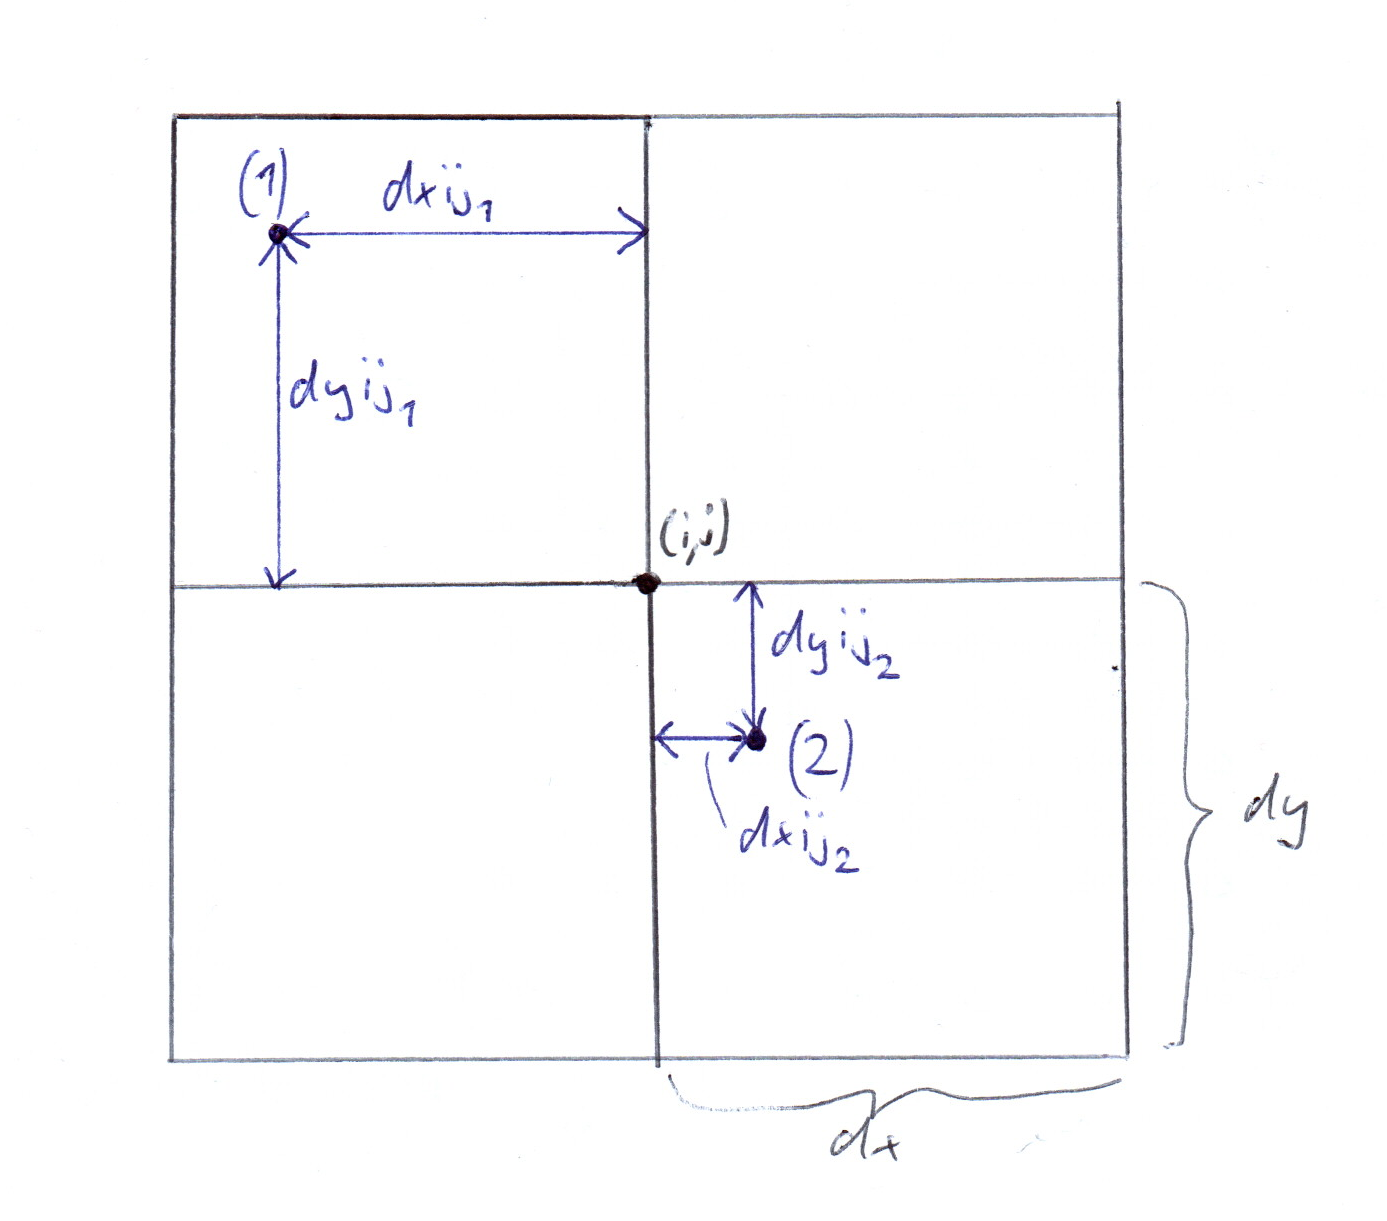 (1)
dxij₁
dyij₁
(i,j)
dyij₂
(2)
dxij₂
dy
dx